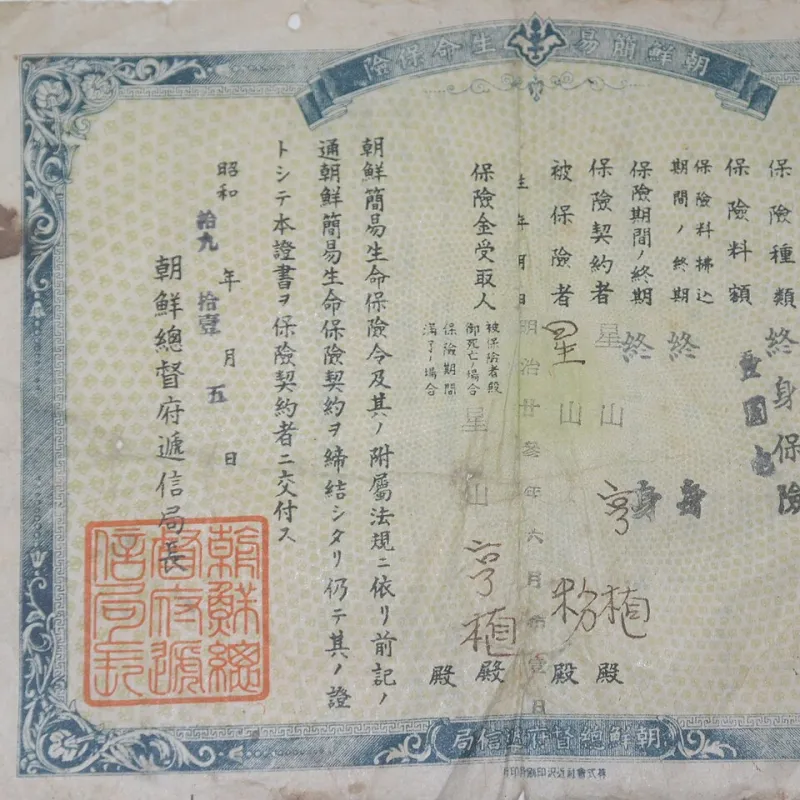 朝鮮簡易生命保險
保險種類 終身保險
保險料額 壹圓
保險料拂込期間ノ終期 終身
保險期間ノ終期 終身
保險契約者 星山亨植 殿
被保險者 星山粉 殿
生年月日 明治廿參年六月拾壹日
保險金受取人
被保險者段御死亡ノ場合
保險期間滿了ノ場合
星山亨植 殿
殿
朝鮮簡易生命保險令及其ノ附屬法規ニ依リ前記ノ
通朝鮮簡易生命保險契約ヲ締結シタリ仍テ其ノ證
トシテ本證書ヲ保險契約者ニ交付ス
昭和拾九年拾壹月五日
朝鮮總督府遞信局長
朝鮮總督府遞信局長
朝鮮總督府遞信局